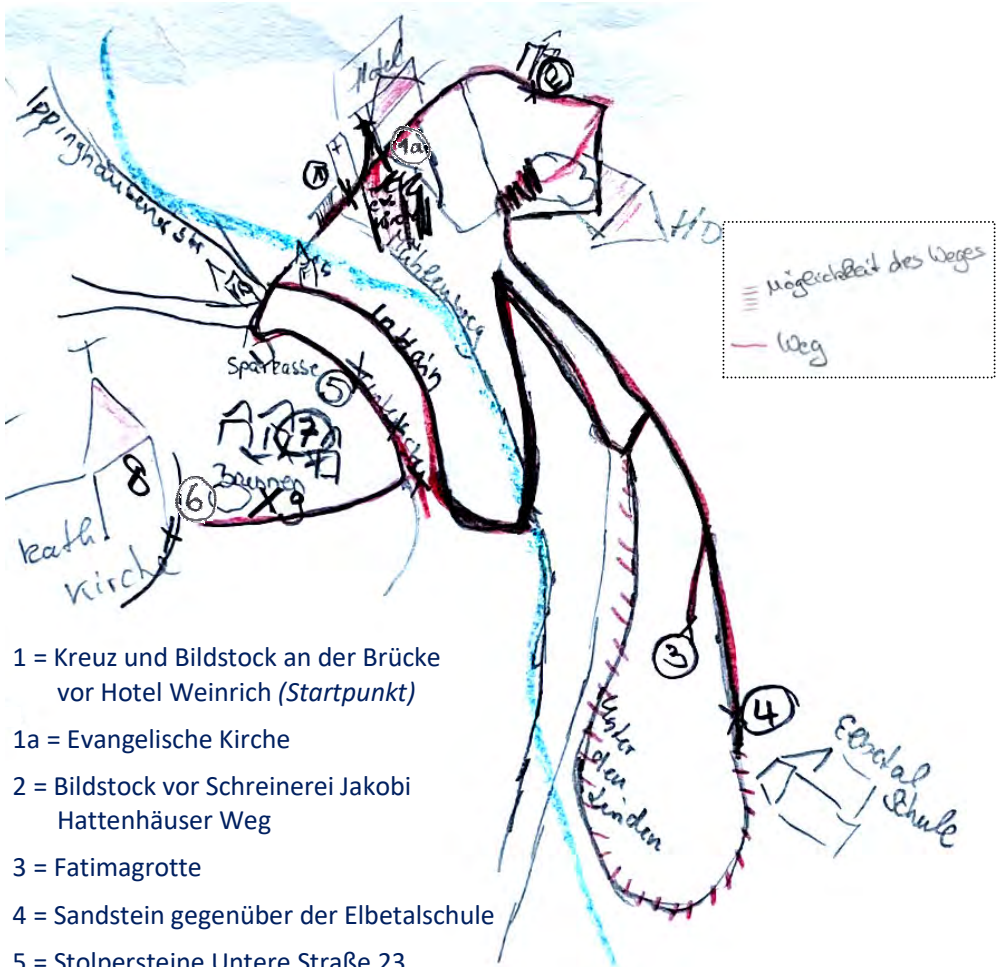 Hotel
2
Ippinghäusener Str
1a
1
ev. Kirche
Mühlenweg
HD
Möglichkeit des Weges
Weg
In Hain
Sparkasse
5
7
Brunnen
6
9
8
kath.
Kirche
3
4
Unter
den
Linden
Elbetal
Schule
1 = Kreuz und Bildstock an der Brücke
vor Hotel Weinrich (Startpunkt)
1a = Evangelische Kirche
2 = Bildstock vor Schreinerei Jakobi
Hattenhäuser Weg
3 = Fatimagrotte
4 = Sandstein gegenüber der Elbetalschule
5 = Stolpersteine Untere Straße 23